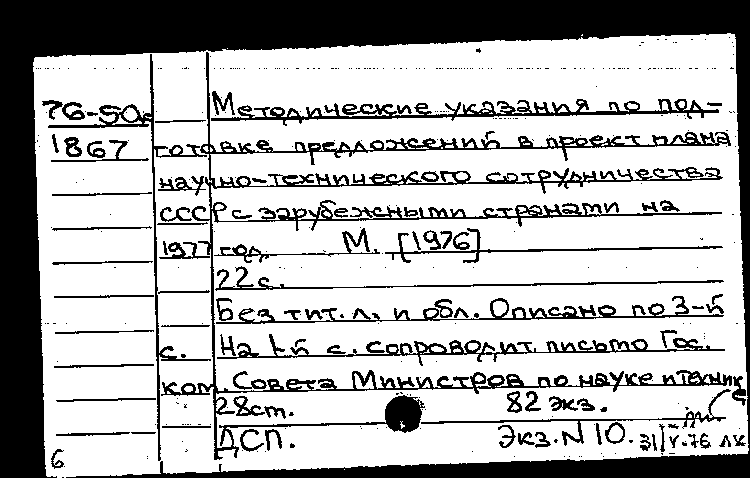 76-50
1867
Методические указания по под-
готовке предложений в проект плана
научно-технического сотрудничества
СССР с зарубежными странами на
1977 год. М. [1976]
22 с.
Без тит. л. и обл. Описано по 3-й
с. На 1-й с. сопроводит. письмо Гос.
ком. Совета Министров по науке и техник
28 см. 82 экз.
ДСП. Экз. N 10. 31/V-76 ЛК
6